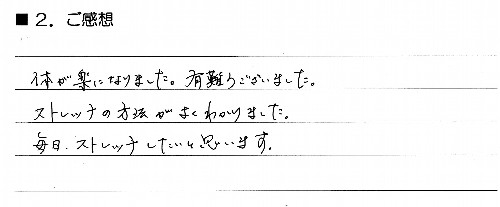 ■2. ご感想
体が楽になりました。有難うございました。
ストレッチの方法がよくわかりました。
毎日、ストレッチしたいと思います。